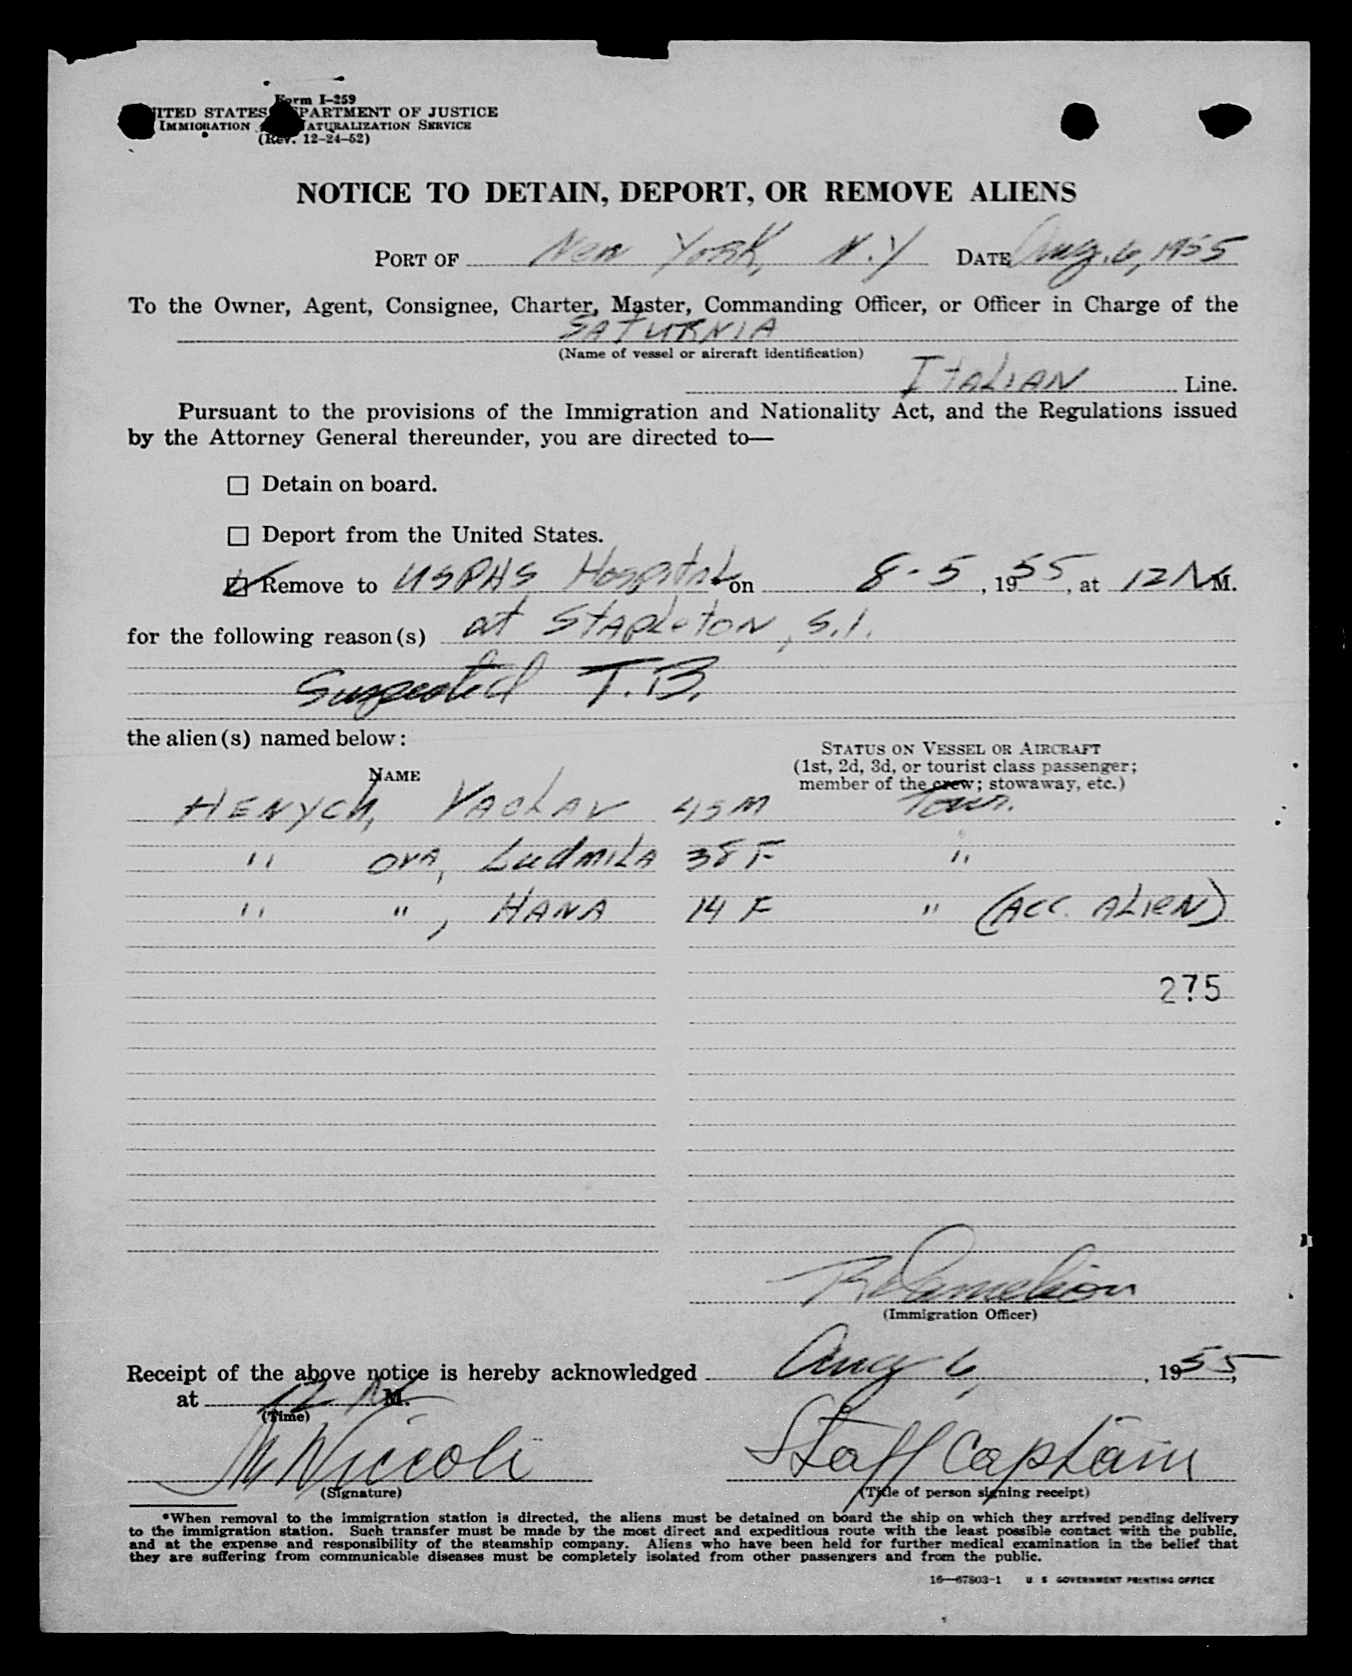 Form I-259
UNITED STATES DEPARTMENT OF JUSTICE
IMMIGRATION AND NATURALIZATION SERVICE
(Rev. 12-24-52)
NOTICE TO DETAIN, DEPORT, OR REMOVE ALIENS
PORT OF New York, N.Y DATE Aug. 6, 1955
To the Owner, Agent, Consignee, Charter, Master, Commanding Officer, or Officer in Charge of the
SATURNIA
(Name of vessel or aircraft identification)
ITALIAN Line.
Pursuant to the provisions of the Immigration and Nationality Act, and the Regulations issued
by the Attorney General thereunder, you are directed to—
Detain on board.
Deport from the United States.
Remove to USPHS Hospital* on 8-5, 1955, at 12 N M.
for the following reason(s) at STAPLETON, S.I.
Suspected T.B.
the alien(s) named below:
STATUS ON VESSEL OR AIRCRAFT
(1st, 2d, 3d, or tourist class passenger;
NAME
member of the crew; stowaway, etc.)
HENYCH, VACLAV 45 M Tour.
" OVA, LUDMILA 38 F "
" ", HANA 14 F " (ACC. ALIEN)
275
(Immigration Officer)
Receipt of the above notice is hereby acknowledged Aug 6, 1955,
at 12 N M.
(Time)
M Niccoli Staff Captain
(Signature) (Title of person signing receipt)
*When removal to the immigration station is directed, the aliens must be detained on board the ship on which they arrived pending delivery
to the immigration station. Such transfer must be made by the most direct and expeditious route with the least possible contact with the public,
and at the expense and responsibility of the steamship company. Aliens who have been held for further medical examination in the belief that
they are suffering from communicable diseases must be completely isolated from other passengers and from the public.
16—67803-1 U S GOVERNMENT PRINTING OFFICE